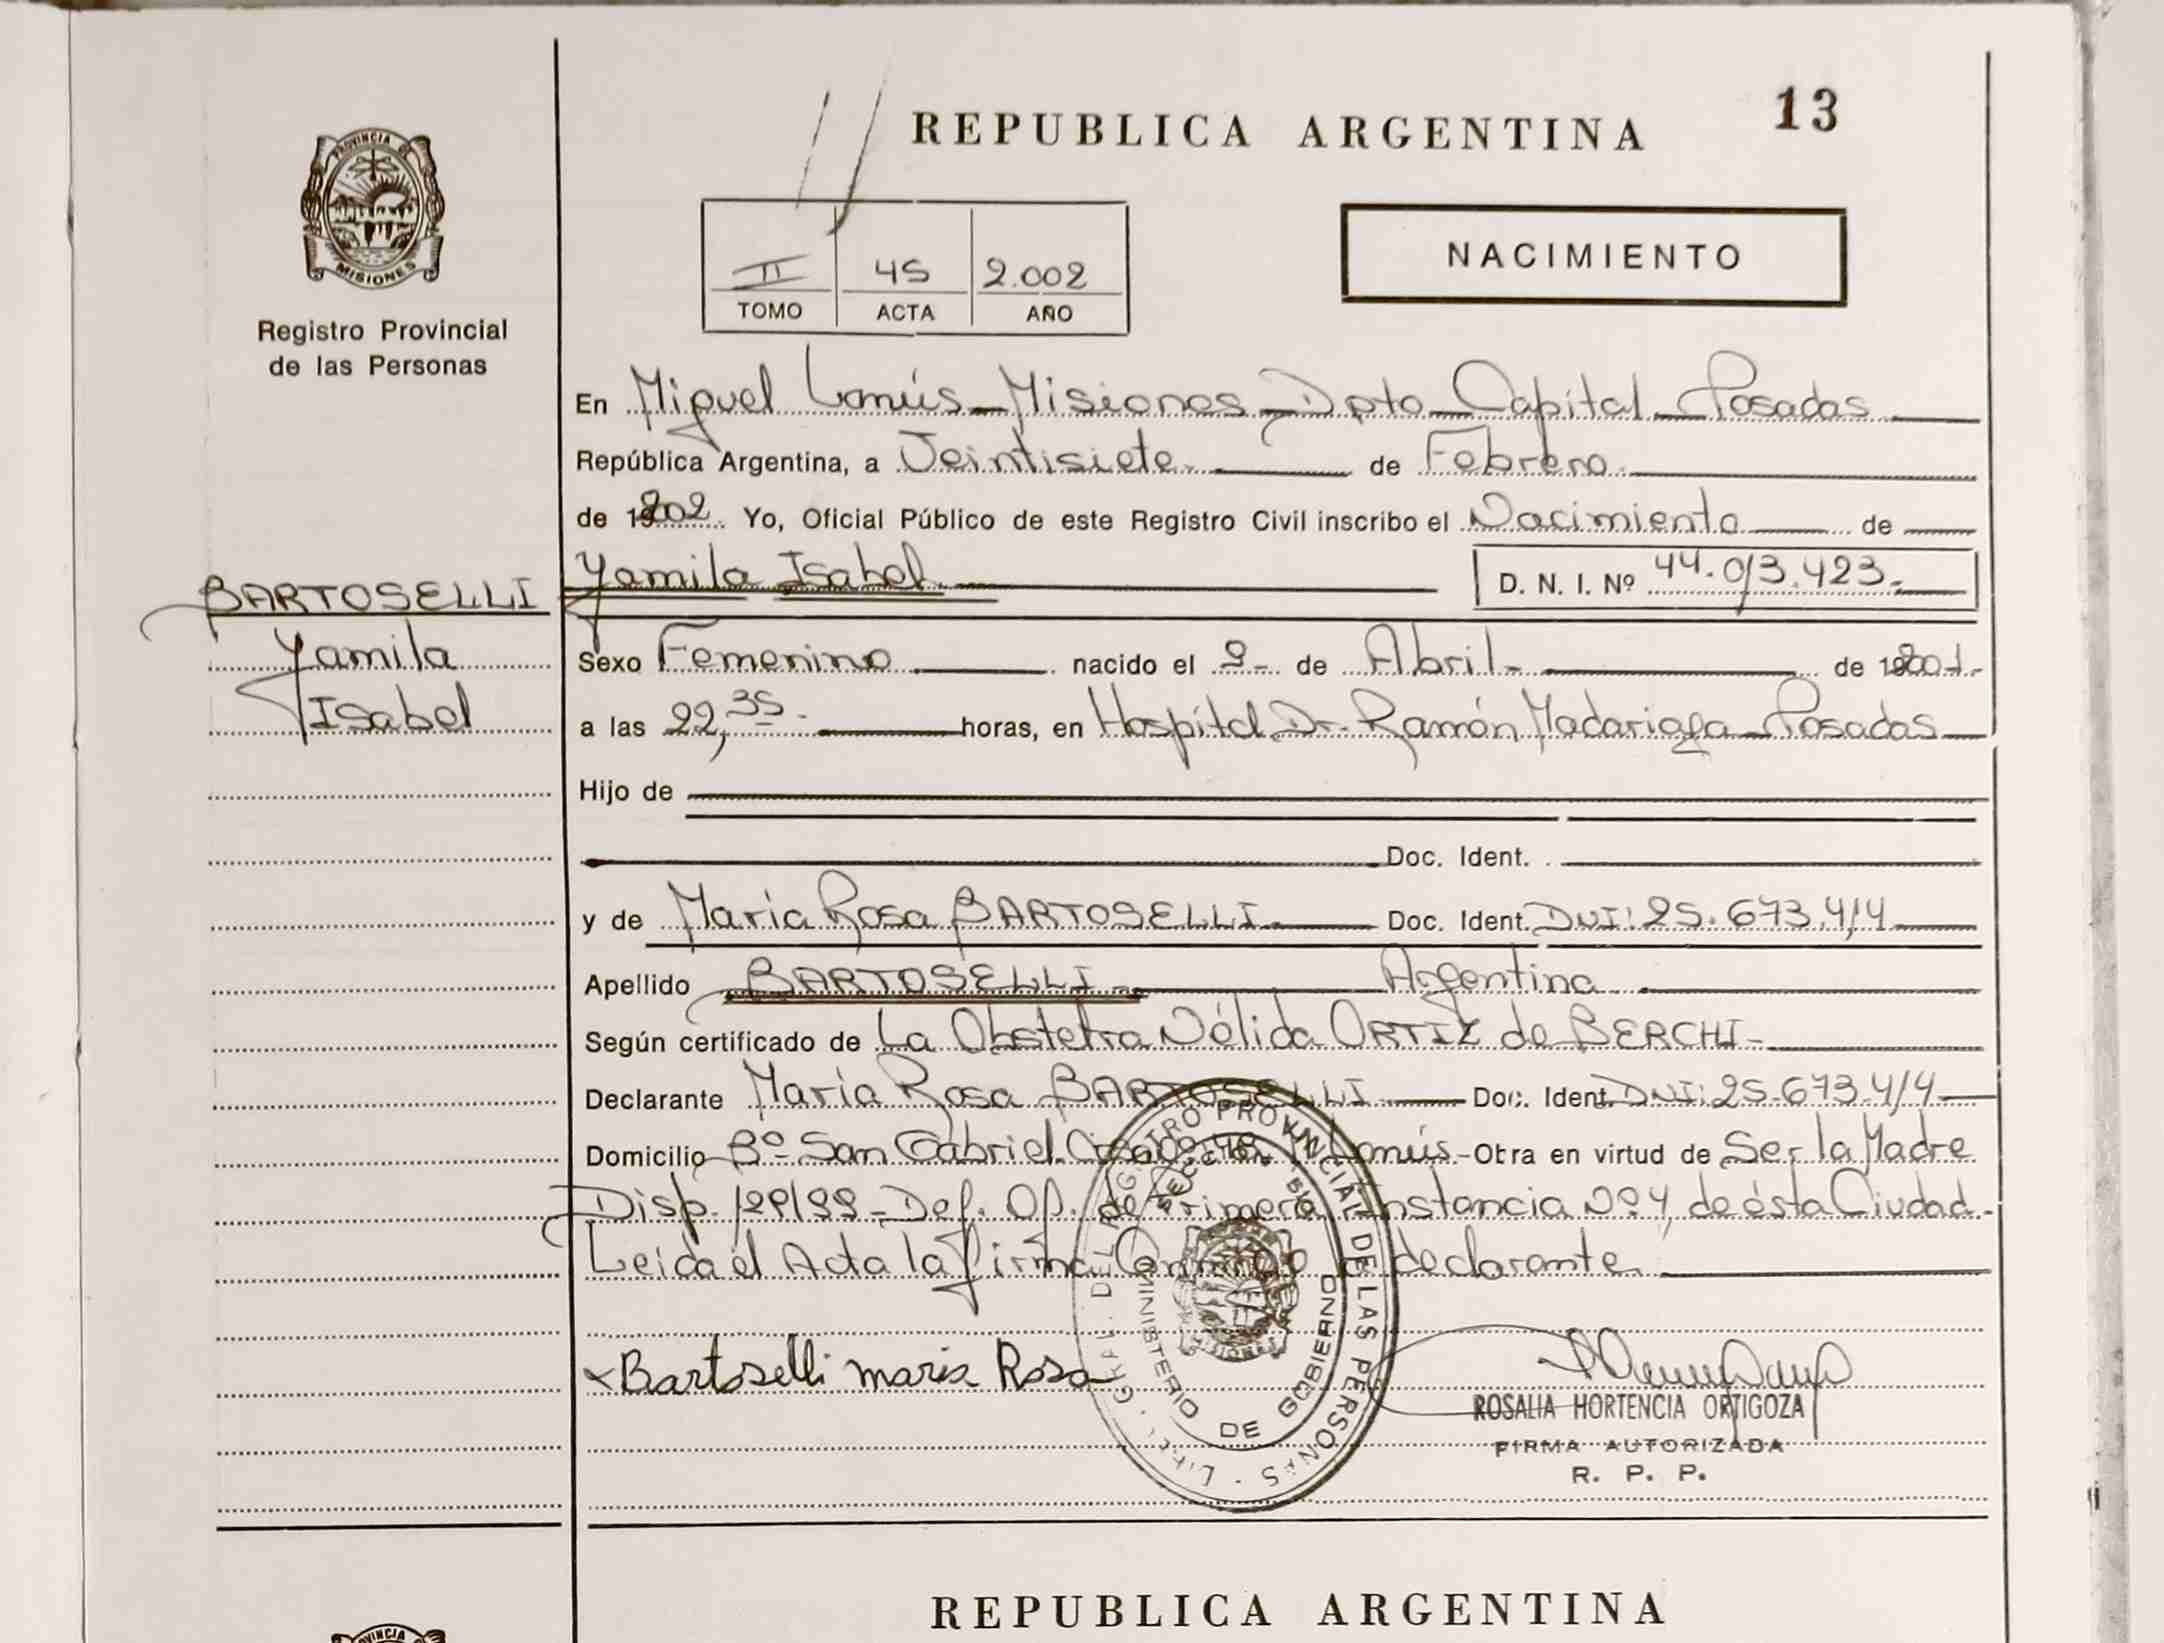 REPUBLICA ARGENTINA
13
PROVINCIA DE
MISIONES
Registro Provincial
de las Personas
II 45 2.002
TOMO ACTA AÑO
NACIMIENTO
En Miguel Lanús - Misiones - Dpto Capital - Posadas
República Argentina, a Veintisiete de Febrero
de 2002 Yo, Oficial Público de este Registro Civil inscribo el Nacimiento de
BARTOSELLI
Yamila
Isabel
Yamila Isabel D. N. I. Nº 44.013.423.
Sexo Femenino nacido el 9 de Abril de 2001
a las 22,35 horas, en Hospital Dr. Ramón Madariaga - Posadas
Hijo de
Doc. Ident.
y de María Rosa BARTOSELLI Doc. Ident. DNI: 25.673.414
Apellido BARTOSELLI Argentina
Según certificado de La Obstetra Nélida ORTIZ de BERCHI
Declarante María Rosa BARTOSELLI Doc. Ident. DNI: 25.673.414
Domicilio Bº San Gabriel Lanús - Obra en virtud de Ser la Madre
Disp. 129/99 - Def. Of. de Primera Instancia Nº 4 de ésta Ciudad.
Leida el Acta la firma Conmigo declarante
x Bartoselli maria Rosa
REGISTRO PROVINCIAL DE LAS PERSONAS
MINISTERIO DE GOBIERNO
MISIONES
ROSALIA HORTENCIA ORTIGOZA
FIRMA AUTORIZADA
R. P. P.
REPUBLICA ARGENTINA